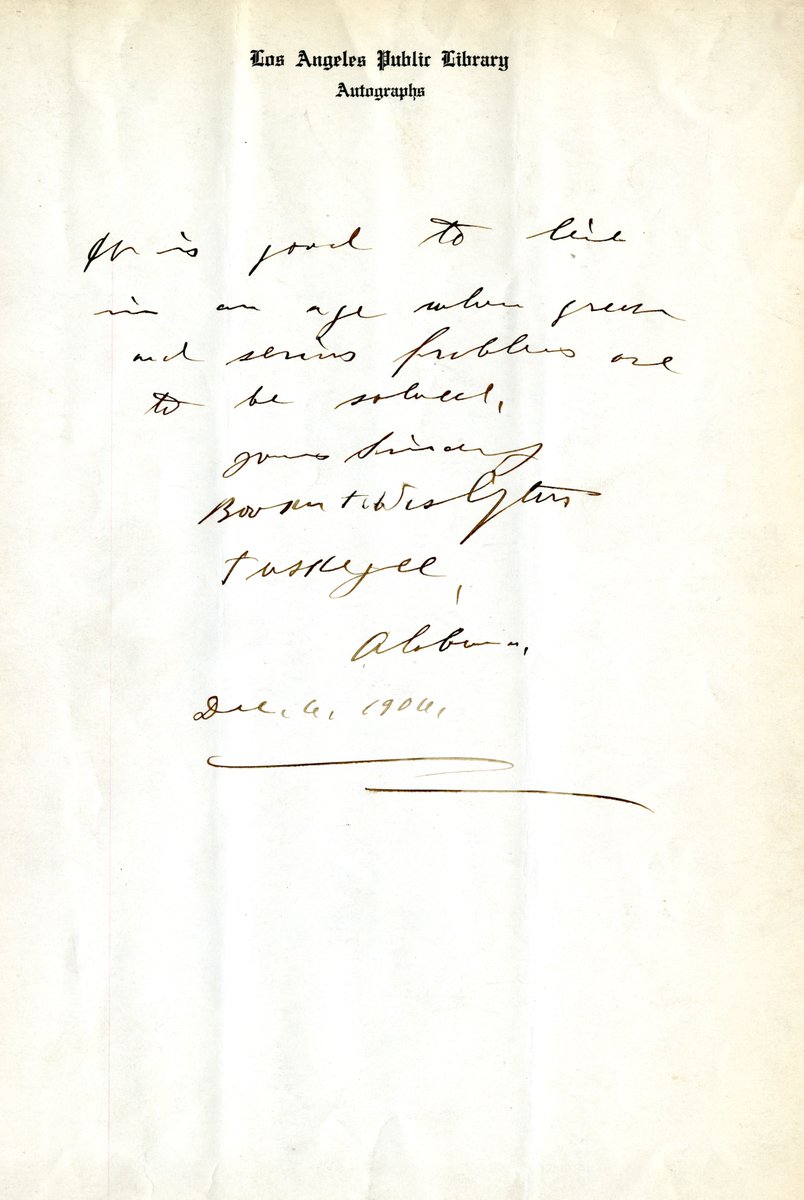 Los Angeles Public Library
Autographs
It is good to live
in an age when great
and serious problems are
to be solved.
Yours Sincerely
Booker T. Washington
Tuskegee,
Alabama,
Dec. 6, 1906.